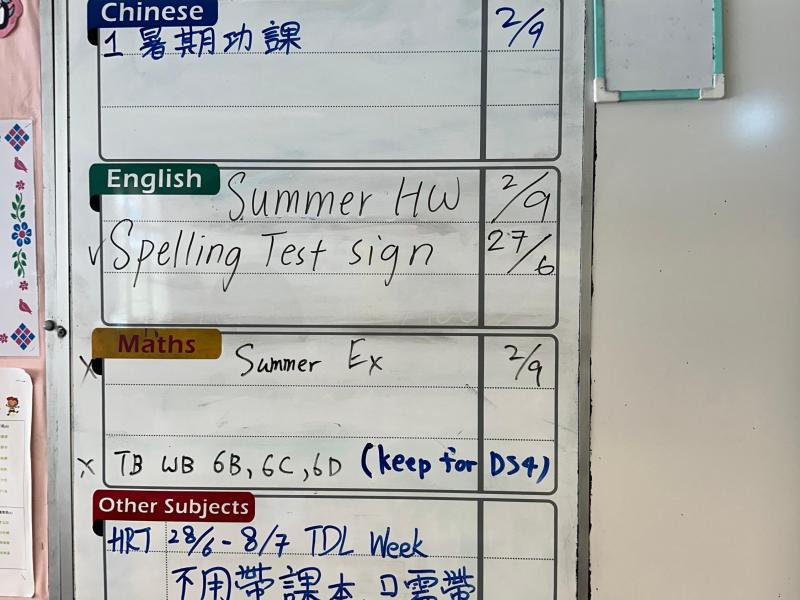 Chinese
1 暑期功課 2/9
English Summer HW 2/9
✓ Spelling Test sign 27/6
Maths
x Summer Ex 2/9
x TB WB 6B, 6C, 6D (keep for DS4)
Other Subjects
HRT 28/6 - 8/7 TDL Week
不用帶課本, 只需帶